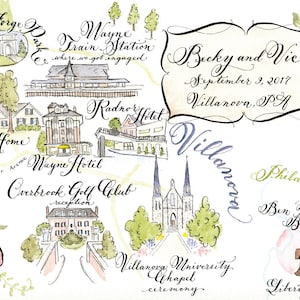 Wayne
Train Station
where we got engaged
Becky and Vic
September 9, 2017
Villanova, PA
Radnor Hotel
Home
Wayne Hotel
Villanova
Overbrook Golf Club
reception
Villanova University
Chapel
ceremony
Ben